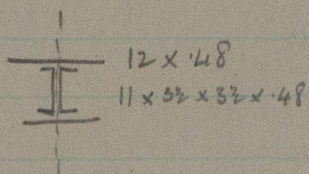 12 × .48
11 × 3½ × 3½ × .48